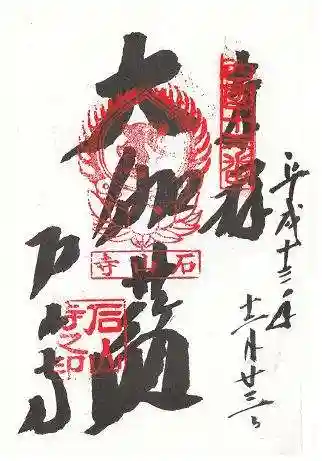 平成十三年
十二月廿三日
奉拝
西國十三番
大伽藍
石山寺
石山寺
石山寺之印